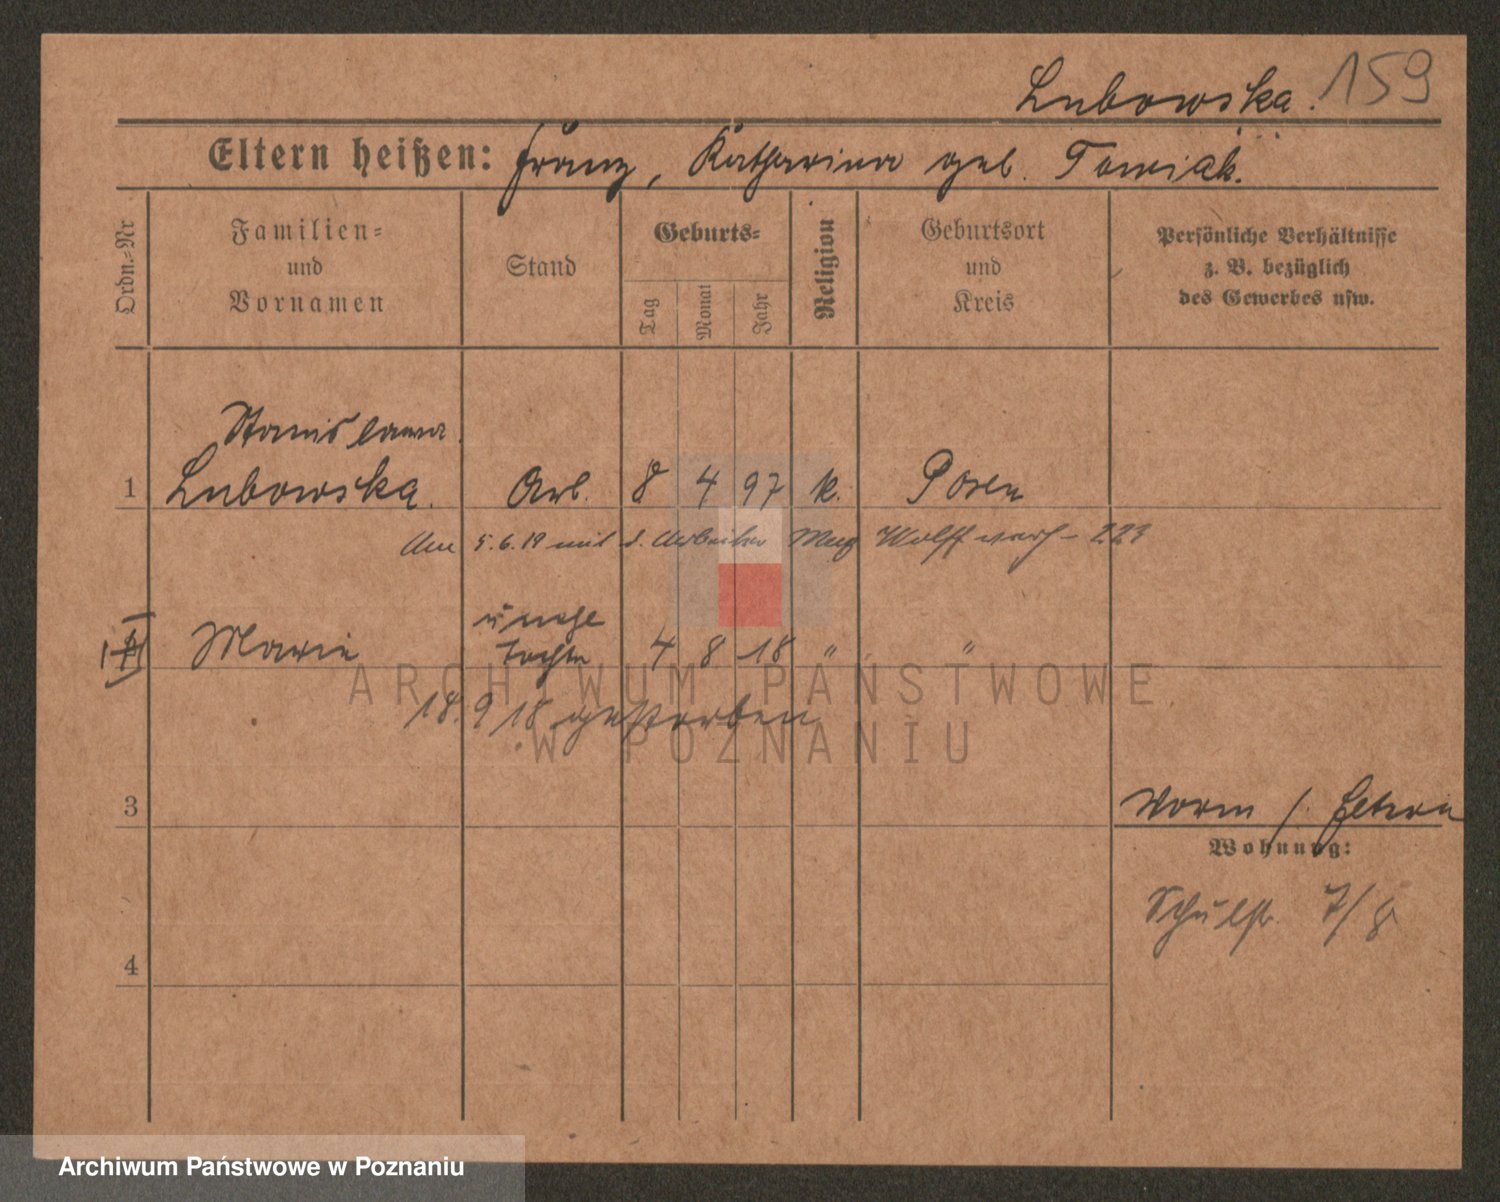 Lubowska. 159
Eltern heißen: Franz, Katharina geb.
Ordn.-Nr
Familien-
und
Vornamen
Stand
Geburts-
Tag
Monat
Jahr
Religion
Geburtsort
und
Kreis
Persönliche Verhältnisse
z. B. bezüglich
des Gewerbes usw.
Stanislawa
1 Lubowska. Arb. 8 4 97 k. Posen
Am 5.6.19 mit d. Arbeiter Wolff verh
unehe
Marie Tochter 4 8 18 " "
18.9 18 gestorben
ARCHIWUM PAŃSTWOWE
W POZNANIU
3
Worm / Eltern
Wohnung:
Schulstr. 7/8
4
Archiwum Państwowe w Poznaniu